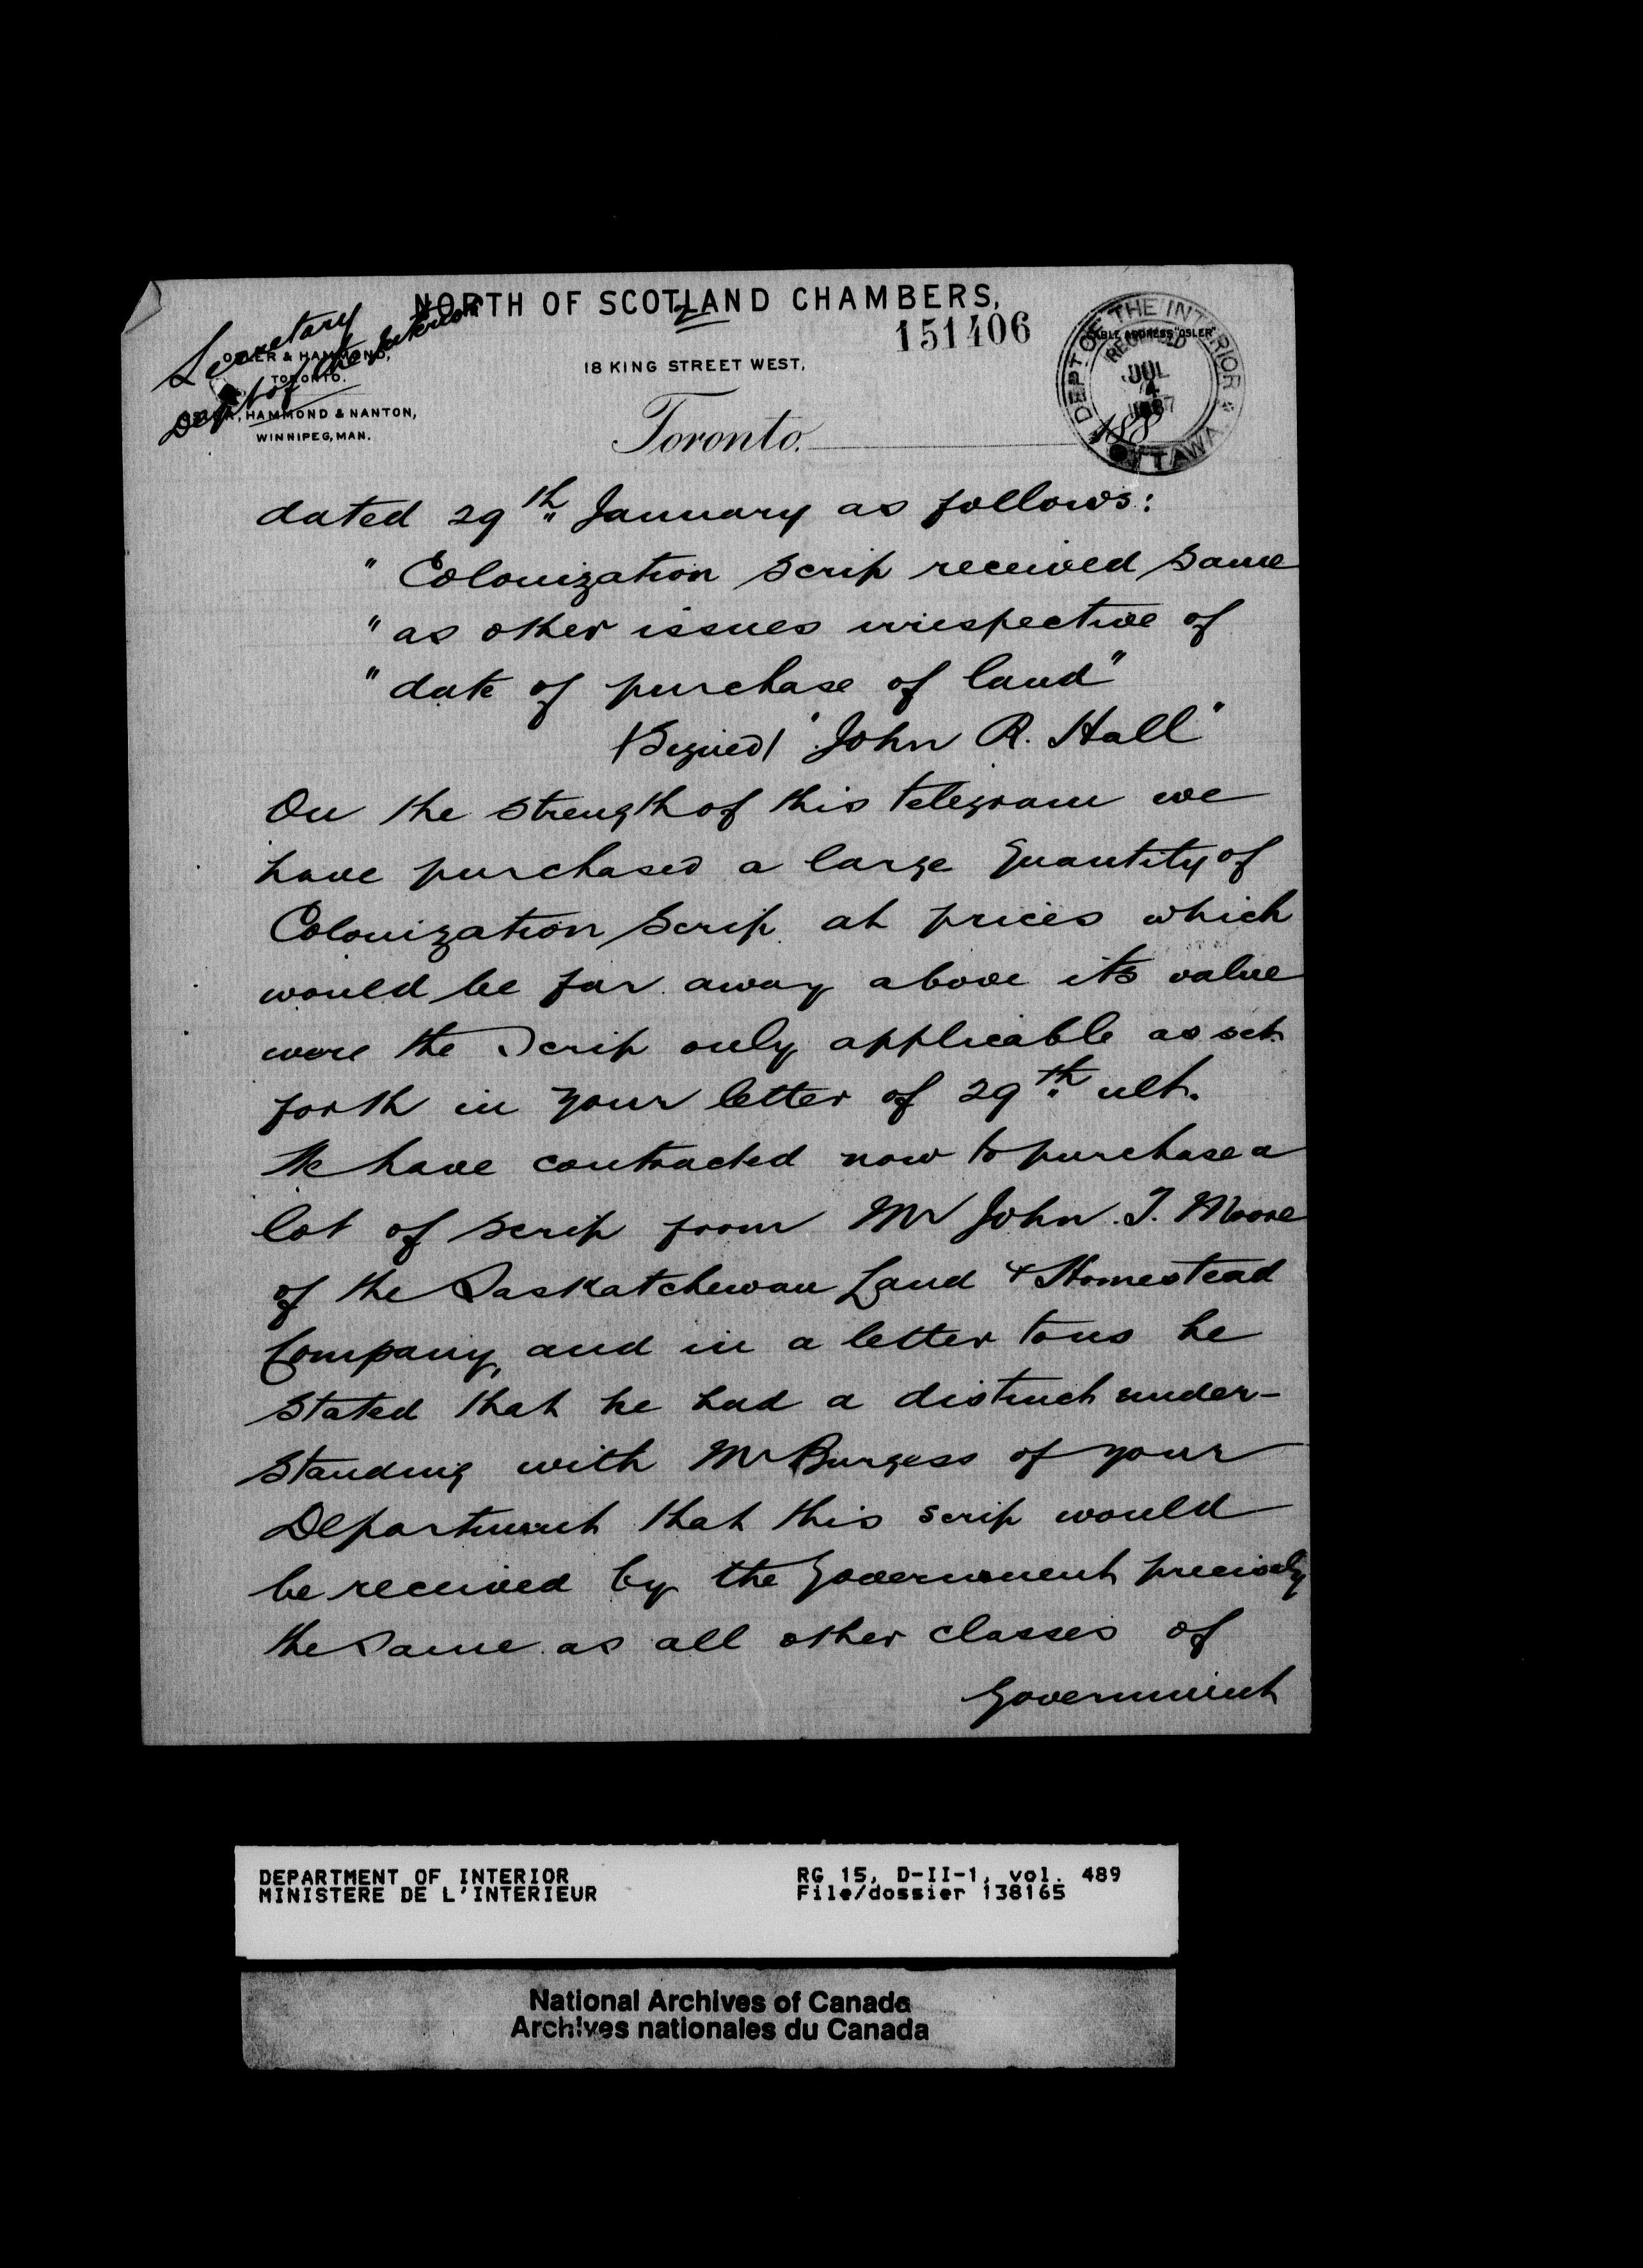 NORTH OF SCOTLAND CHAMBERS,
2
151406
Secretary
Dept of the Interior
OSLER & HAMMOND,
TORONTO.
OSLER, HAMMOND & NANTON,
WINNIPEG, MAN.
18 KING STREET WEST,
CABLE ADDRESS "OSLER"
DEPT OF THE INTERIOR
RECEIVED
JUL
4
1887
OTTAWA
Toronto. 188
dated 29th January as follows:
" Colonization Scrip received same
" as other issues irrespective of
" date of purchase of land"
(Signed) "John R. Hall"
On the strength of this telegram we
have purchased a large quantity of
Colonization Scrip at prices which
would be far away above its value
were the Scrip only applicable as set
forth in your letter of 29th ult.
We have contracted now to purchase a
lot of Scrip from Mr John T. Moore
of the Saskatchewan Land & Homestead
Company, and in a letter to us he
stated that he had a distinct under-
standing with Mr Burgess of your
Department that this scrip would
be received by the Government precisely
the same as all other classes of
Government
DEPARTMENT OF INTERIOR
MINISTERE DE L'INTERIEUR
RG 15, D-II-1, vol. 489
File/dossier 138165
National Archives of Canada
Archives nationales du Canada